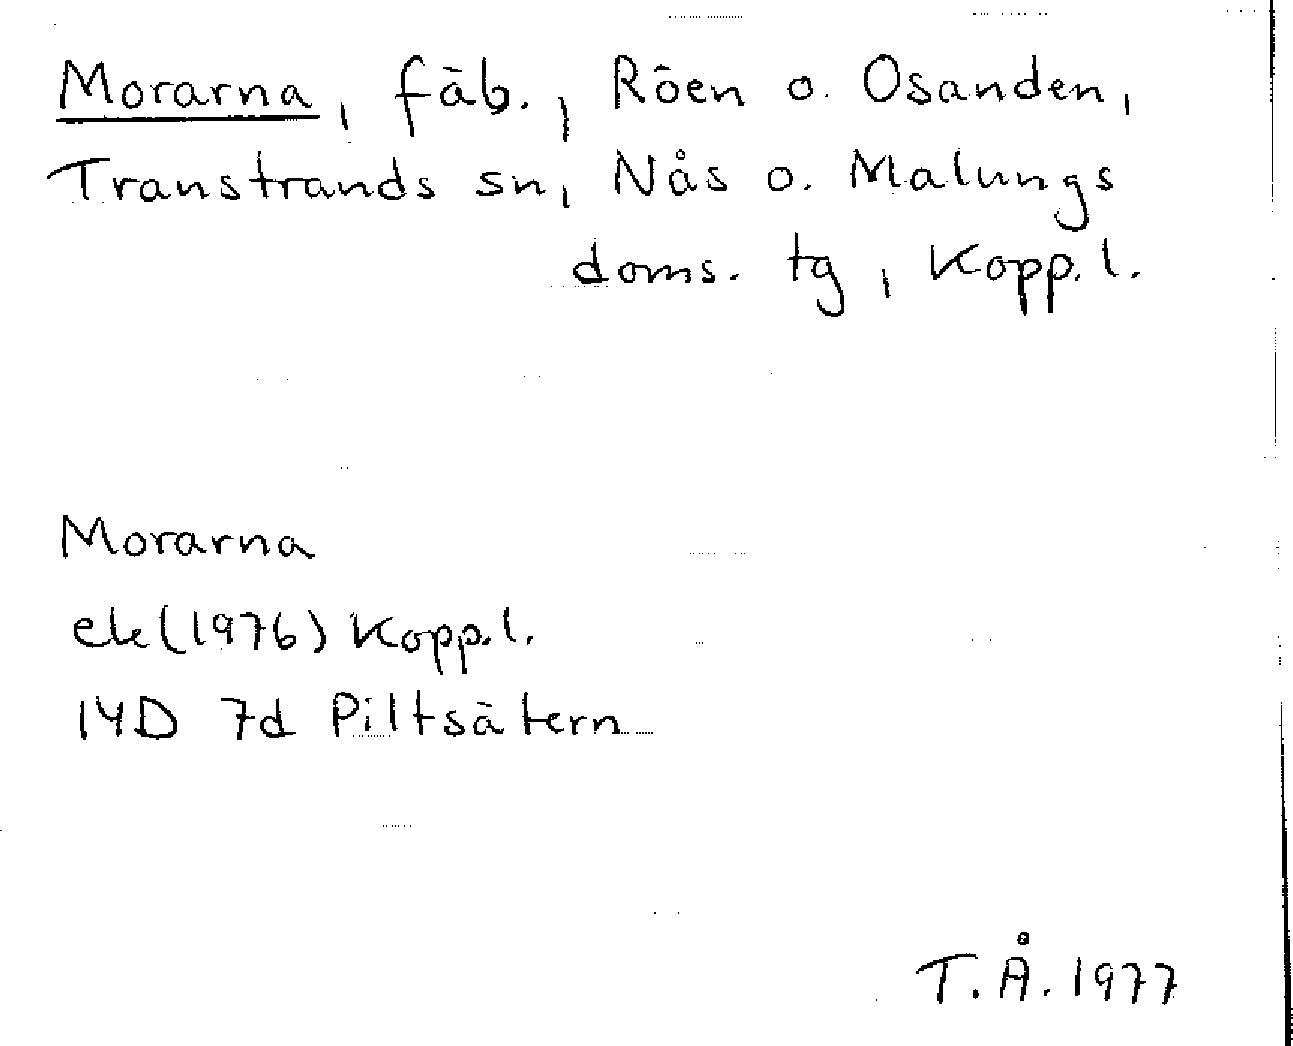 Morarna, fäb., Röen o. Osanden,
Transtrands sn, Nås o. Malungs
doms. tg, Kopp. l.
Morarna
ek (1976) Kopp. l.
14D 7d Piltsätern
T. Å. 1977